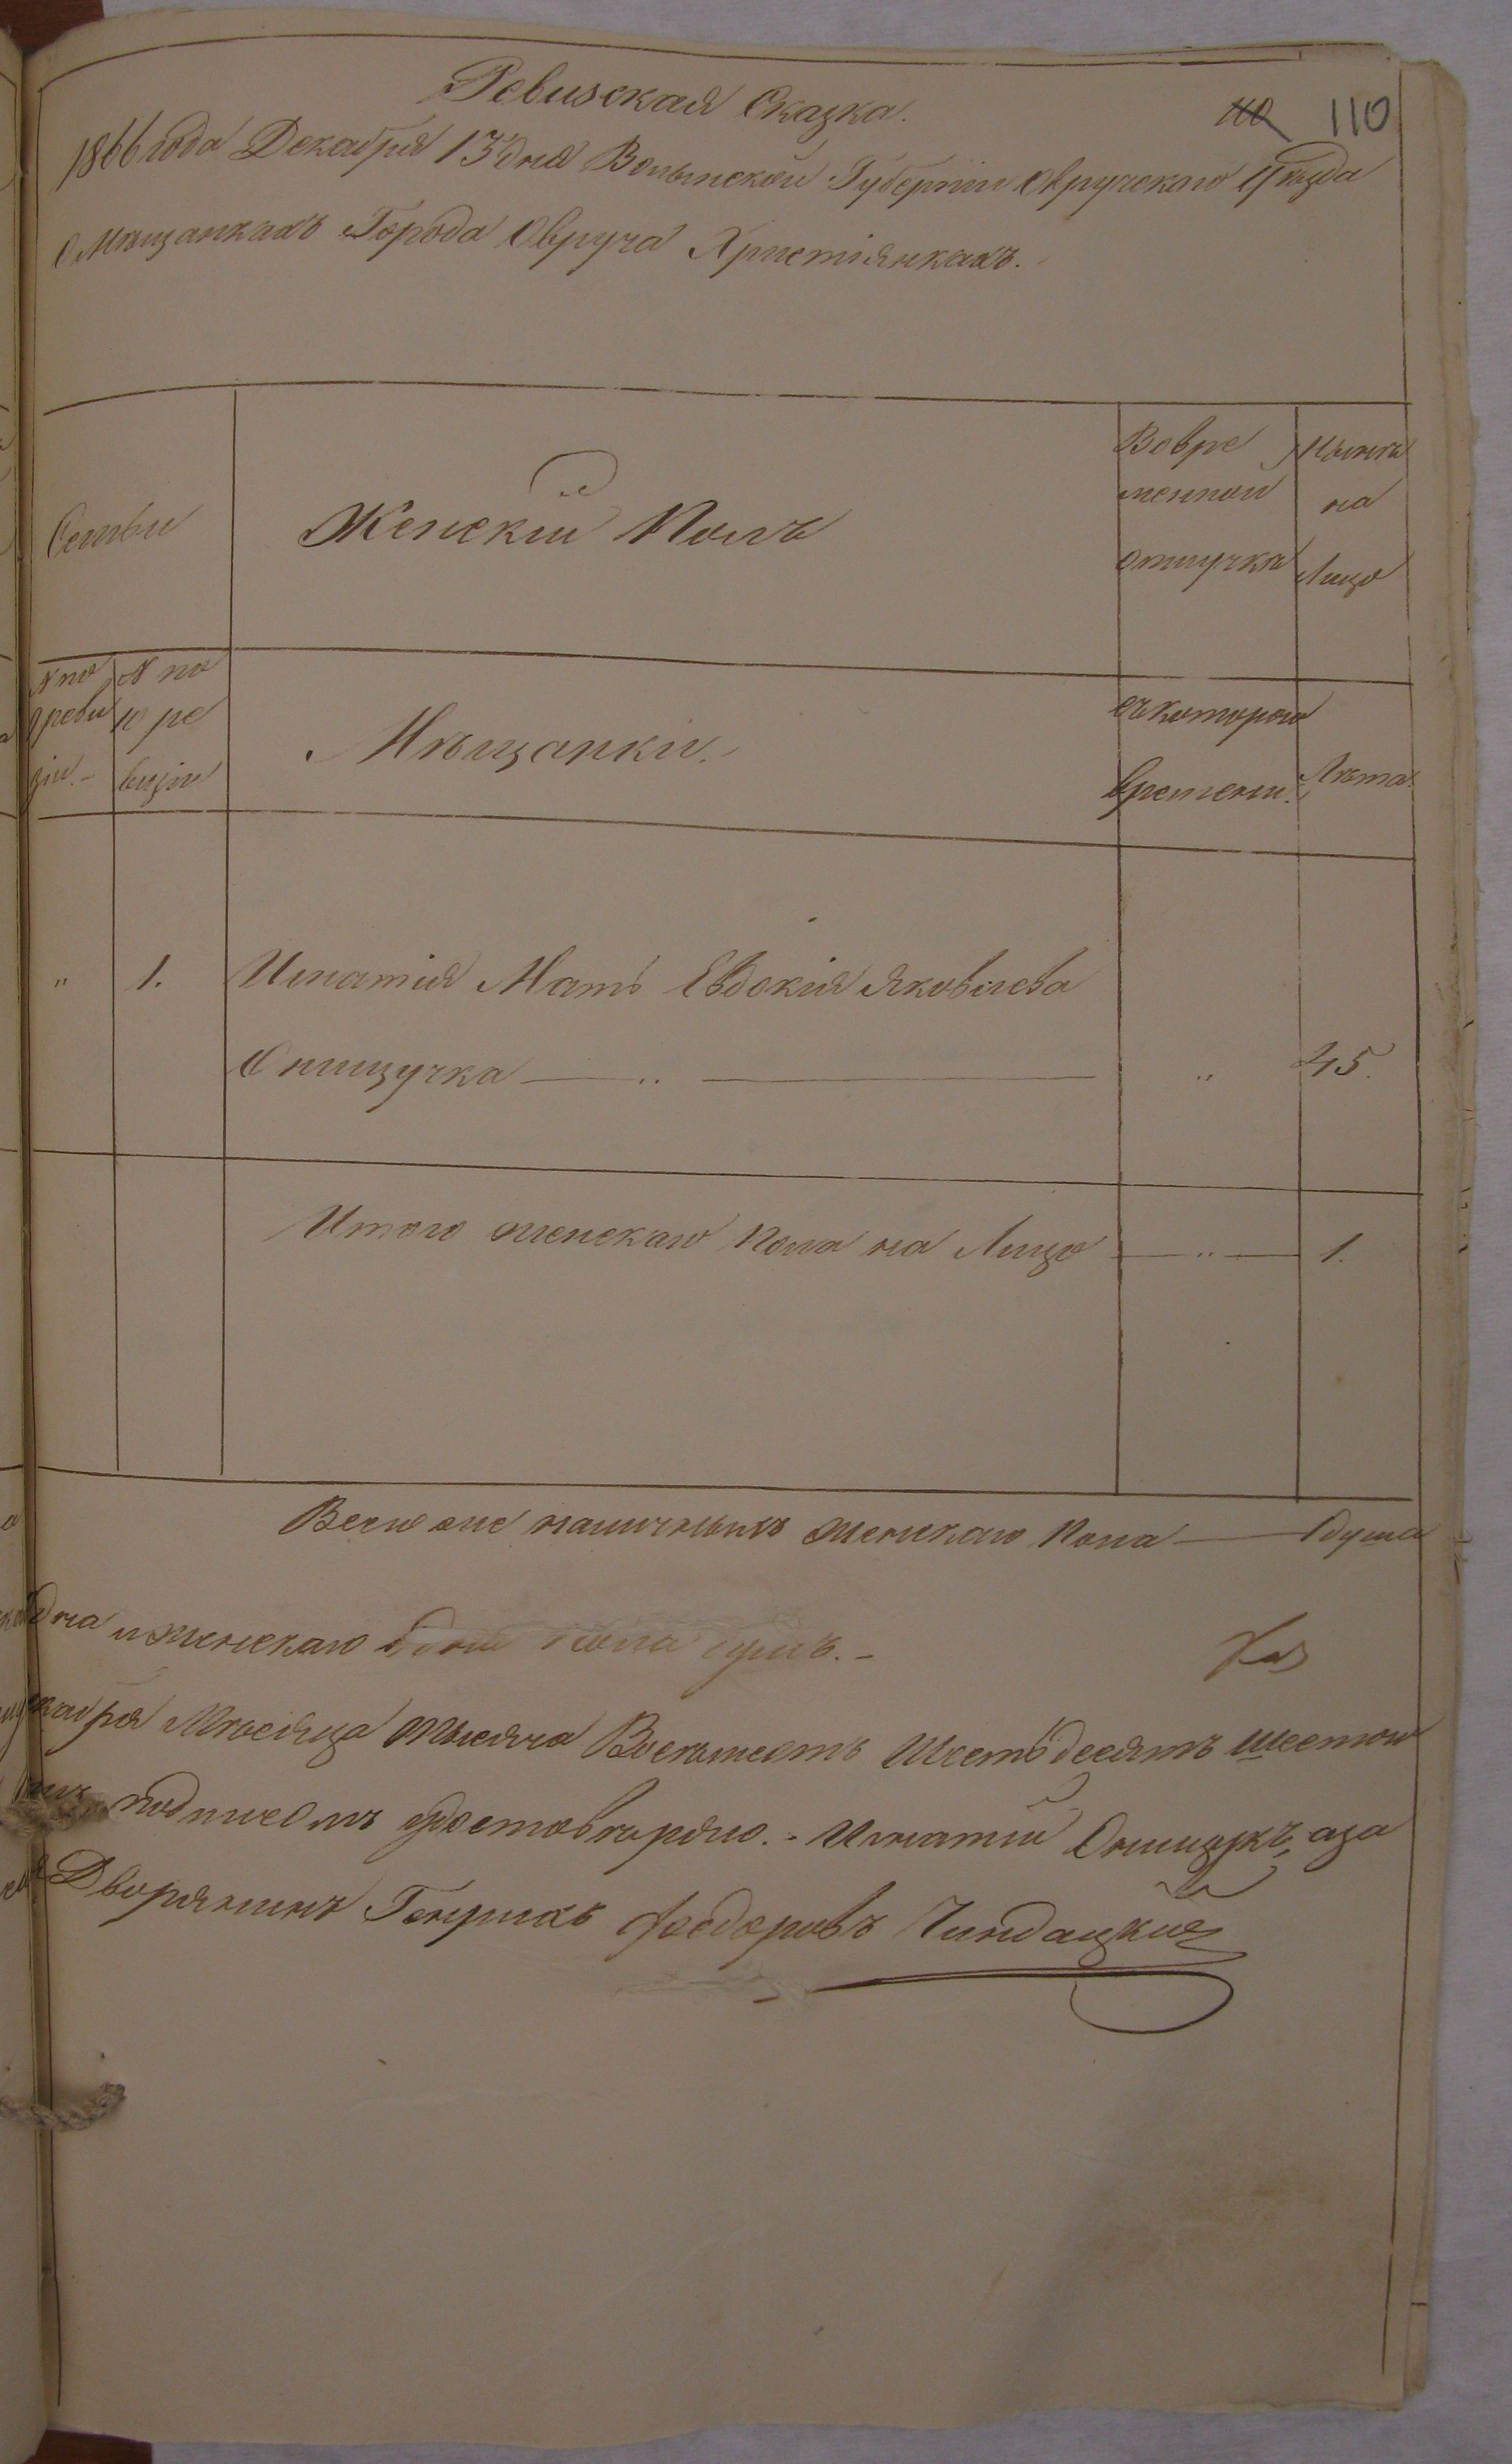 Ревизская Сказка.
110 110
1866 года Декабря 13 дня Волынской Губернiи Овручскаго Уѣзда
О Мѣщанкахъ Города Овруча Христiянкахъ.
Семьи
Женскiй Полъ
Вовре
менной
отлучкѣ
Нынѣ
на
Лицо
№ по
9 реви
зiи.-
№ по
10 ре
визiи
Мѣщанки.
съ котораго
времени.
Лѣта.
" 1. Игнатiя Мать Евдокiя Яковлева
Онищучка — " — " 45.
Итого женскаго пола на Лицо — " — 1.
Всего же наличныхъ женскаго пола — 1 душа
одна и женскаго пола душъ.-
кабря Мѣсяца тысяча Восемьсотъ Шестьдесятъ шестого
подписомъ удостовѣряю. - Игнатiй Онищукъ, а за
Дворянинъ Генрихъ Федоровъ Чиндацкiй